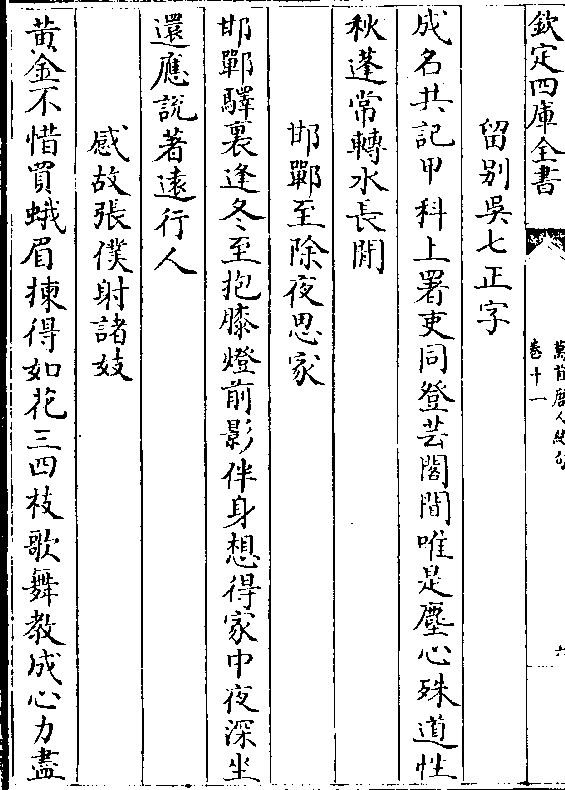 欽定四庫全書
萬首唐人絶句
卷十一
六
留别吳七正字
成名共記甲科上署吏同登芸閣間唯是塵心殊道性
秋蓬常轉水長閒
邯鄲至除夜思家
邯鄲驛裏逢冬至抱膝燈前影伴身想得家中夜深坐
還應説著逺行人
感故張僕射諸妓
黄金不惜買蛾眉揀得如花三四枝歌舞教成心力盡